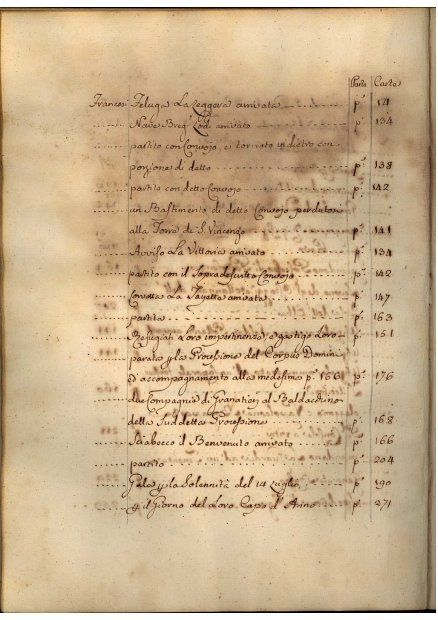 Parte Carte
Francesi Feluga La Leggera arrivata p.ª 121
Nave Brig.º Lodi arrivato p.ª 134
partito con Convojo, e tornato indietro con
porzione di detto p.ª 138
partito con detto Convojo p.ª 142
un Bastimento di detto Convojo perdutosi
alla Torre di S. Vincenzo p.ª 141
Avviso La Vittoria arrivato p.ª 134
partito con il Sopradescritto Convojo p.ª 142
Corvetta La Fayette arrivata p.ª 147
partita p.ª 163
Refugiati Loro impertinenze, e gastigo Loro p.ª 151
parata p la Procesione del Corpus Domini
d'accompagnamento alla medesima p.ª 166 p.ª 176
due Compagnie di Granatieri al Baldacchino
della Suddetta Procesione p.ª 168
Sciabecco il Benvenuto arrivato p.ª 166
partito p.ª 204
Gala p la Solennità del 14 Luglio p.ª 190
p il Giorno del Loro Capo d'Anno p.ª 271